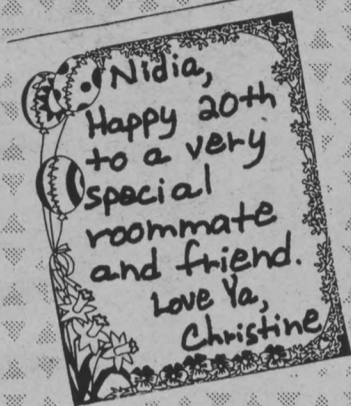 Nidia,
Happy 20th
to a very
special
roommate
and friend.
Love Ya,
Christine